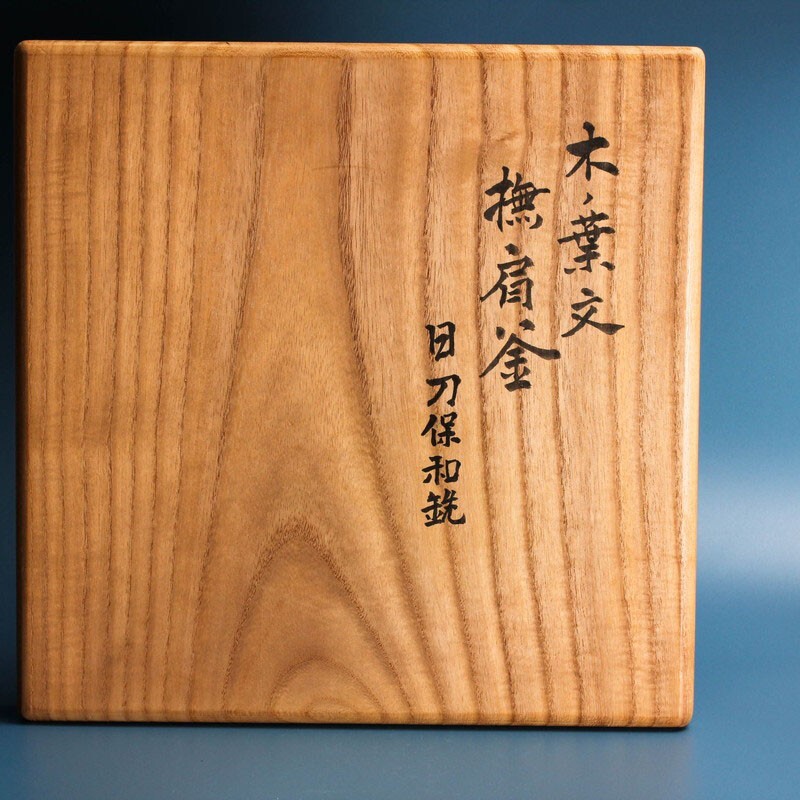 木ノ葉文
撫肩釜
日刀保和銑